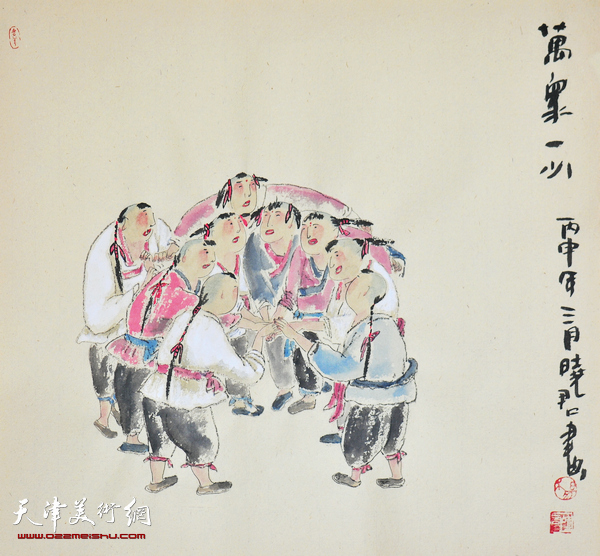 萬衆一心
丙申年三月曉君畫
天津美術網
www.ozzmeishu.com